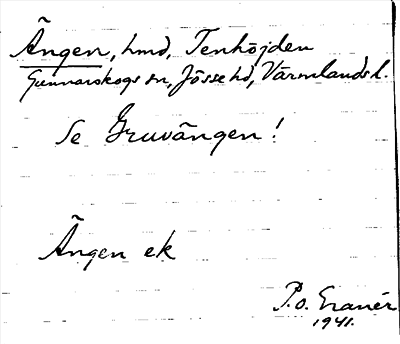 Ängen, hmd, Tenhöjden
Gunnarskogs sn, Jösse hd, Värmlands l.
Se Gruvängen!
Ängen ek
P.o. Granér
1941.